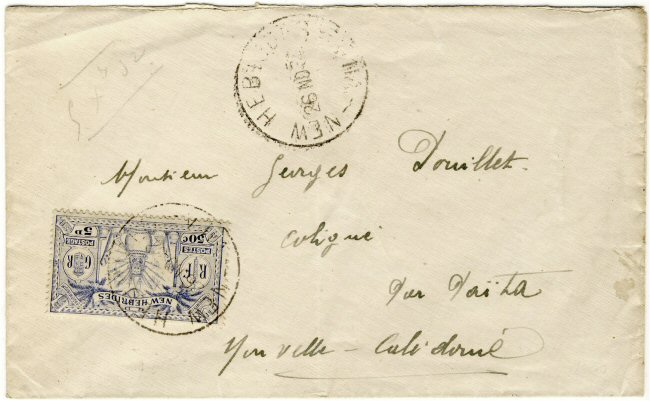 NEW HEBRIDES
26 NO
Monsieur Georges Douillet.
Coligué
Par Païta
Nouvelle-Calédonie
NEW HEBRIDES
G R
R F
POSTAGE
POSTES
5D
50c